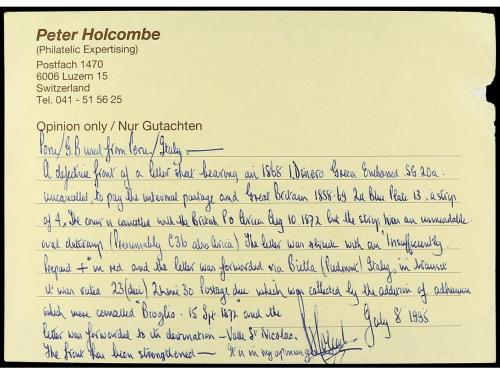 Peter Holcombe
(Philatelic Expertising)
Postfach 1470
6006 Luzern 15
Switzerland
Tel. 041 - 51 56 25
Opinion only / Nur Gutachten
Peru/G.B used from Peru/Italy
A defective front of a letter sheet bearing an 1868 1 Dinero Green Embossed SG 20a
uncancelled to pay the internal postage and Great Britain 1858-69 2d Blue Plate 13 a strip
of 4. The cover is cancelled with the British P.O Arica Aug 10 1872 but the strip has an unreadable
oval datestamp (Presumably C36 also Arica) The letter was struck with an "Insufficiently
Prepaid" in red and the letter was forwarded via Biella (Piedmont) Italy, in transit
it was rated 23 (deci) 2 Lire 30 Postage due which was collected by the addition of adhesives
which were cancelled "Bioglio 15 Spt 1872" and the
letter was forwarded to its destination - Valle St Nicolao.
The front has been strengthened - It is in my opinion genuine
July 8 1985